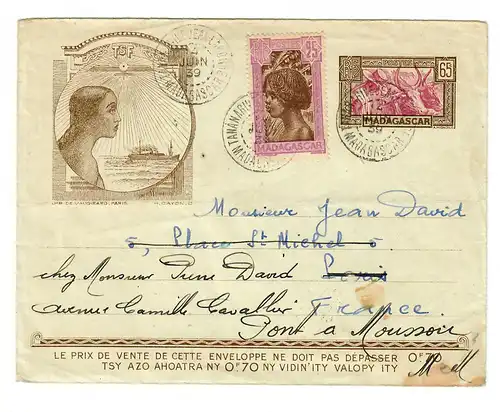 TSF
JUIN
39
MADAGASCAR
25
MADAGASCAR
TANANARIVE
MADAGASCAR
65
MADAGASCAR
39
MADAGASCAR
IMP. DE VAUGIRARD, PARIS
Monsieur Jean David
5, Place St Michel
chez Monsieur Pierre David Paris
avenue Camille Cavallier France
Pont à Mousson
M et M
LE PRIX DE VENTE DE CETTE ENVELOPPE NE DOIT PAS DÉPASSER 0F70
TSY AZO AHOATRA NY 0F70 NY VIDIN'ITY VALOPY ITY